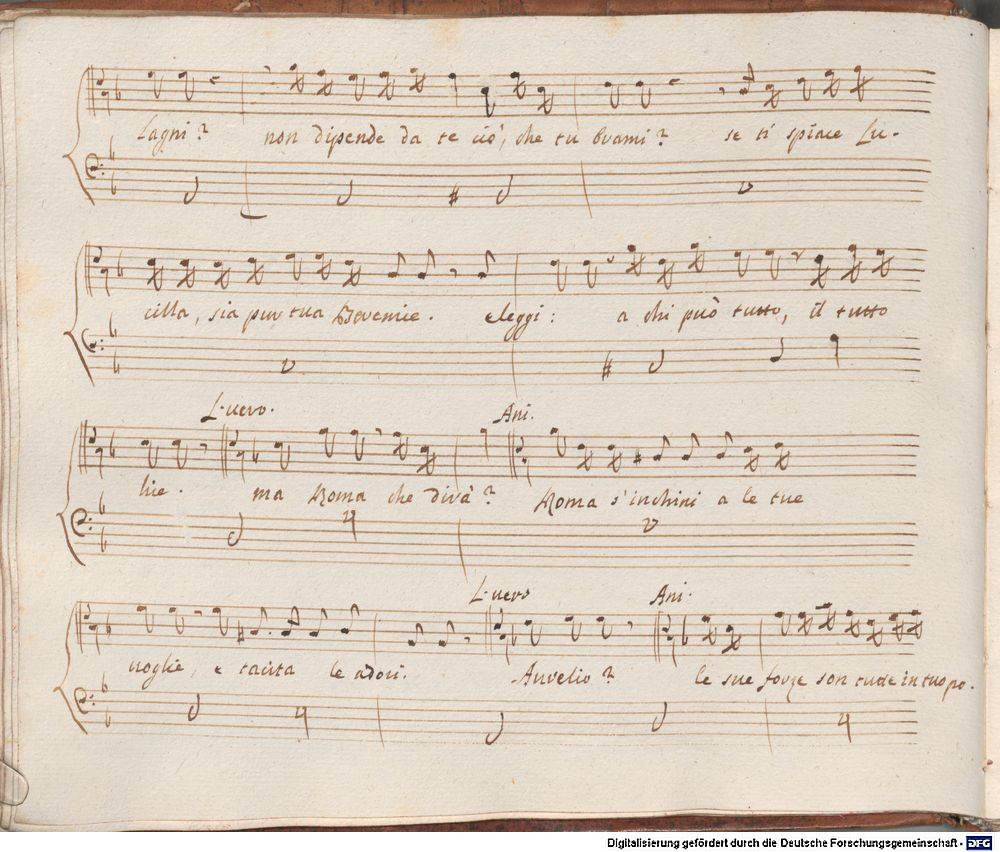 Lagni? non dipende da te ciò, che tu brami? se ti spiace Lu-
cilla, sia pur tua Berenice. eleggi: a chi può tutto, il tutto
L. vero. Ani.
lice. ma Roma che dirà? Roma s'inchini a le tue
L. vero Ani.
voglie, e tacita le adori. Aurelio? le sue forze son tutte in tuo po-
Digitalisierung gefördert durch die Deutsche Forschungsgemeinschaft - DFG